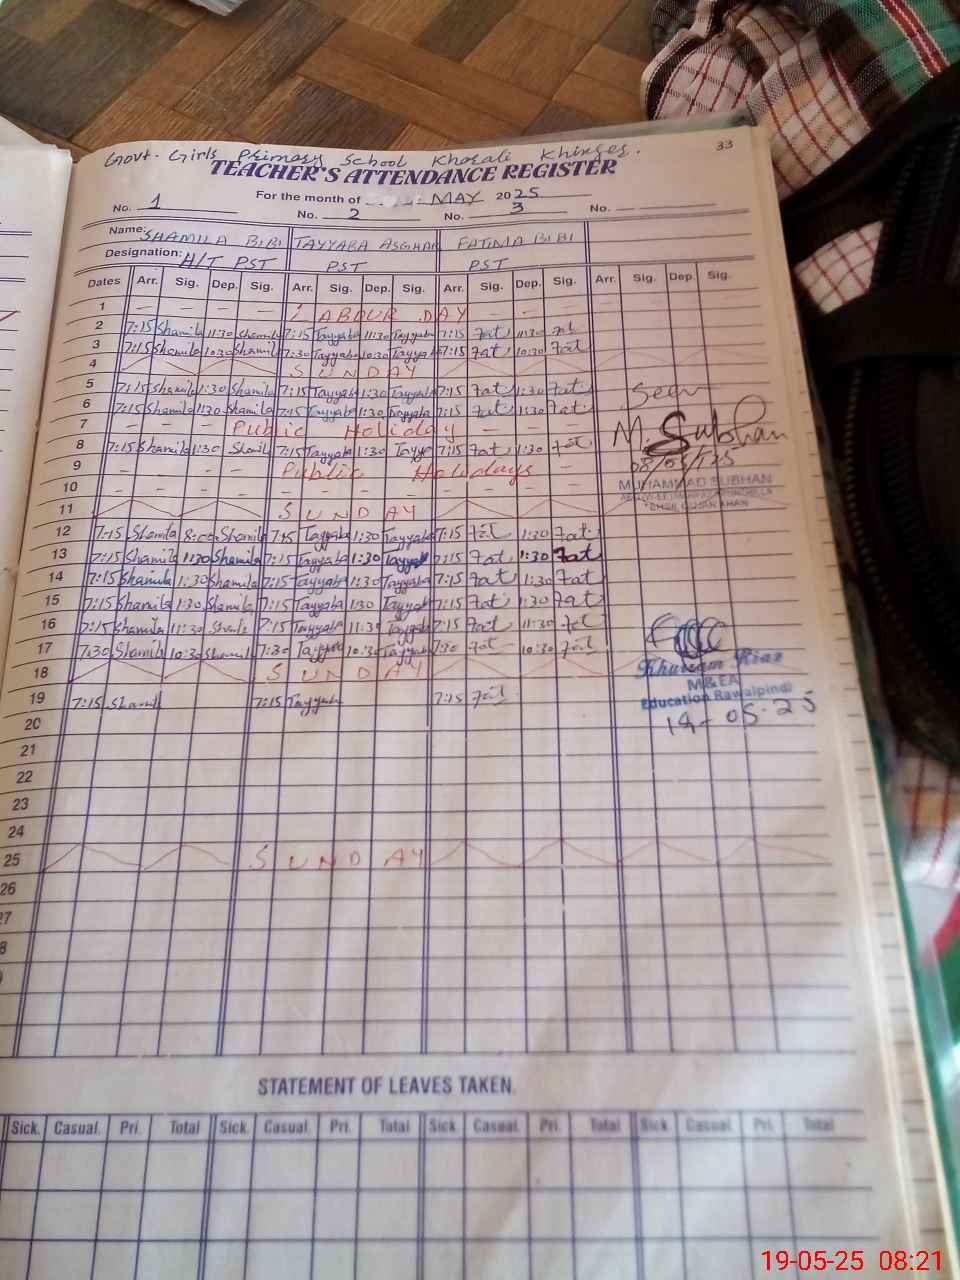 Govt. Girls Primary School Khosali Khinger.
33
TEACHER'S ATTENDANCE REGISTER
For the month of MAY 2025
No. 1 No. 2 No. 3 No.
Name: SHAMILA BIBI TAYYABA ASGHAR FATIMA BIBI
Designation: H/T PST PST PST
Dates Arr. Sig. Dep. Sig. Arr. Sig. Dep. Sig. Arr. Sig. Dep. Sig. Arr. Sig. Dep. Sig.
1 - - - - LABOUR DAY - - -
2 7:15 Shamila 11:30 Shamila 7:15 Tayyaba 11:30 Tayyaba 7:15 Fat 11:30 Fat
3 7:15 Shamila 10:30 Shamila 7:30 Tayyaba 10:30 Tayyaba 7:15 Fat 10:30 Fat
4 SUNDAY
5 7:15 Shamila 1:30 Shamila 7:15 Tayyaba 1:30 Tayyaba 7:15 Fat 1:30 Fat
Seen
6 7:15 Shamila 1:30 Shamila 7:15 Tayyaba 1:30 Tayyaba 7:15 Fat 1:30 Fat
7 - - - Public Holiday - - - -
M. Subhan
8 7:15 Shamila 1:30 Shamila 7:15 Tayyaba 1:30 Tayya 7:15 Fat 1:30 Fat
08/05/25
9 - - - - Public Holidays
MUHAMMAD SUBHAN
10 - - - - - - - - - - - -
11 SUNDAY
12 7:15 Shamila 8:00 Shamila 7:15 Tayyaba 1:30 Tayyaba 7:15 Fat 1:30 Fat
13 7:15 Shamila 1:30 Shamila 7:15 Tayyaba 1:30 Tayyab 7:15 Fat 1:30 Fat
14 7:15 Shamila 1:30 Shamila 7:15 Tayyaba 1:30 Tayyaba 7:15 Fat 1:30 Fat
15 7:15 Shamila 1:30 Shamila 7:15 Tayyaba 1:30 Tayyab 7:15 Fat 1:30 Fat
16 7:15 Shamila 11:30 Shamila 7:15 Tayyaba 11:30 Tayyab 7:15 Fat 11:30 Fat
17 7:30 Shamila 10:30 Shamila 7:30 Tayyaba 10:30 Tayyab 7:30 Fat 10:30 Fat
18 SUNDAY
Khurram Riaz
M&EA
Education Rawalpindi
19 7:15 Shamil 7:15 Tayyab 7:15 Fat
19-05-25
20
21
22
23
24
25 SUNDAY
26
27
8
STATEMENT OF LEAVES TAKEN.
Sick. Casual. Pri. Total Sick. Casual. Pri. Total Sick. Casual. Pri. Total Sick. Casual. Pri. Total
19-05-25 08:21